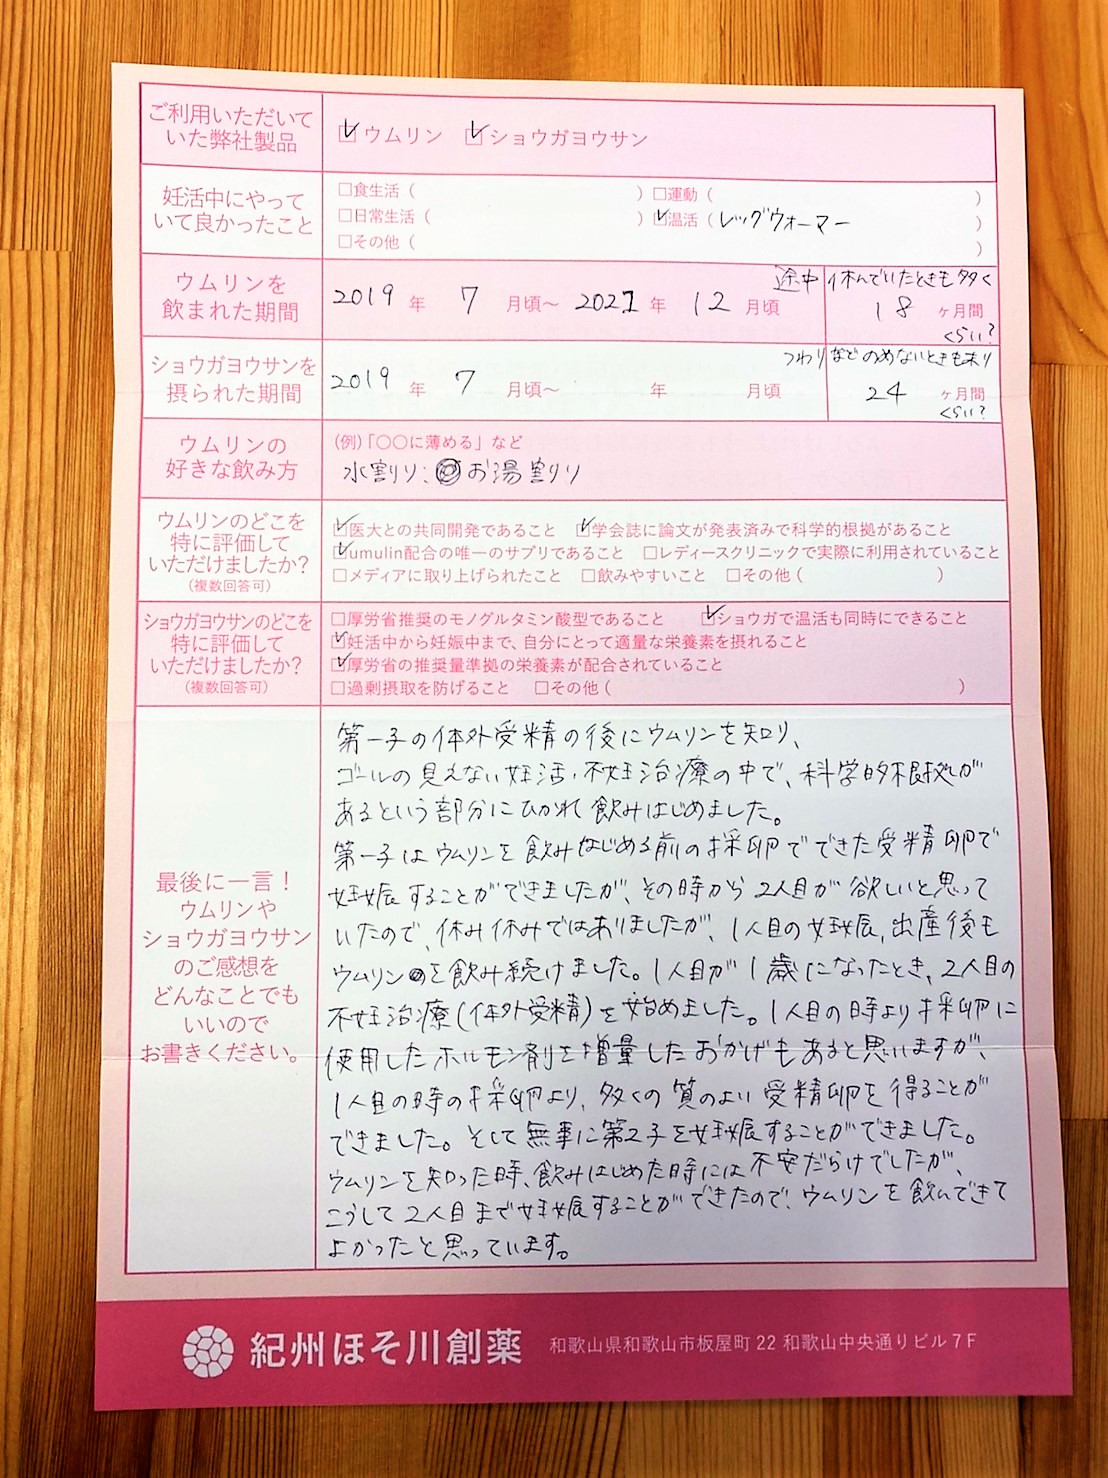 ご利用いただいて
いた弊社製品
☑ウムリン ☑ショウガヨウサン
妊活中にやって
いて良かったこと
□食生活( ) □運動( )
□日常生活( ) ☑温活(レッグウォーマー )
□その他( )
ウムリンを
飲まれた期間
2019年 7月頃〜 2021年 12月頃
途中休んでいたときも多く
18ヶ月間
くらい?
ショウガヨウサンを
摂られた期間
2019年 7月頃〜 年 月頃
つわりなどのめないときも末り
24ヶ月間
くらい?
ウムリンの
好きな飲み方
(例)「〇〇に薄める」など
水割り、お湯割り
ウムリンのどこを
特に評価して
いただけましたか?
(複数回答可)
☑医大との共同開発であること ☑学会誌に論文が発表済みで科学的根拠があること
☑umulin配合の唯一のサプリであること □レディースクリニックで実際に利用されていること
□メディアに取り上げられたこと □飲みやすいこと □その他( )
ショウガヨウサンのどこを
特に評価して
いただけましたか?
(複数回答可)
□厚労省推奨のモノグルタミン酸型であること ☑ショウガで温活も同時にできること
☑妊活中から妊娠中まで、自分にとって適量な栄養素を摂れること
☑厚労省の推奨量準拠の栄養素が配合されていること
□過剰摂取を防げること □その他( )
最後に一言!
ウムリンや
ショウガヨウサン
のご感想を
どんなことでも
いいので
お書きください。
第一子の体外受精の後にウムリンを知り、
ゴールの見えない妊活・不妊治療の中で、科学的根拠が
あるという部分にひかれ飲みはじめました。
第一子はウムリンを飲みはじめる前の採卵でできた受精卵で
妊娠することができましたが、その時から2人目が欲しいと思って
いたので、休み休みではありましたが、1人目の妊娠,出産後も
ウムリンを飲み続けました。1人目が1歳になったとき、2人目の
不妊治療(体外受精)を始めました。1人目の時より採卵に
使用したホルモン剤を増量したおかげもあると思いますが、
1人目の時の採卵より、多くの質のよい受精卵を得ることが
できました。そして無事に第2子を妊娠することができました。
ウムリンを知った時、飲みはじめた時には不安だらけでしたが、
こうして2人目まで妊娠することができたので、ウムリンを飲んできて
よかったと思っています。
紀州ほそ川創薬 和歌山県和歌山市板屋町22 和歌山中央通りビル7F